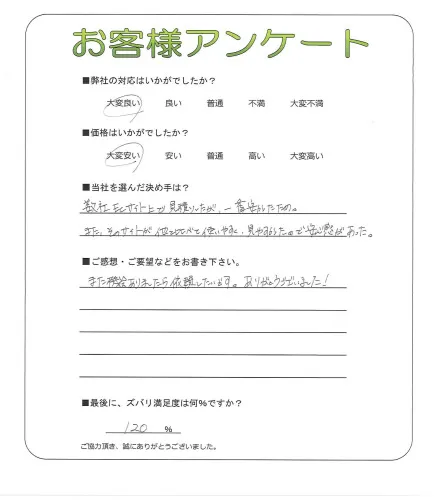 お客様アンケート
■弊社の対応はいかがでしたか？
大変良い 良い 普通 不満 大変不満
■価格はいかがでしたか？
大変安い 安い 普通 高い 大変高い
■当社を選んだ決め手は？
数社ECサイト上で見積りしたが、一番安かったため。
また、そのサイトが他と比べて使いやすく、見やすかったので安心感があった。
■ご感想・ご要望などをお書き下さい。
また機会ありましたら依頼したいです。ありがとうございました！
■最後に、ズバリ満足度は何％ですか？
120 ％
ご協力頂き、誠にありがとうございました。